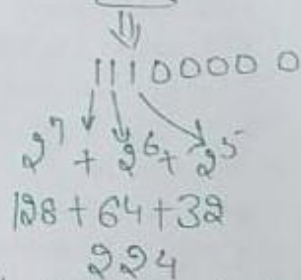 11100000
2⁷ + 2⁶ + 2⁵
128 + 64 + 32
224